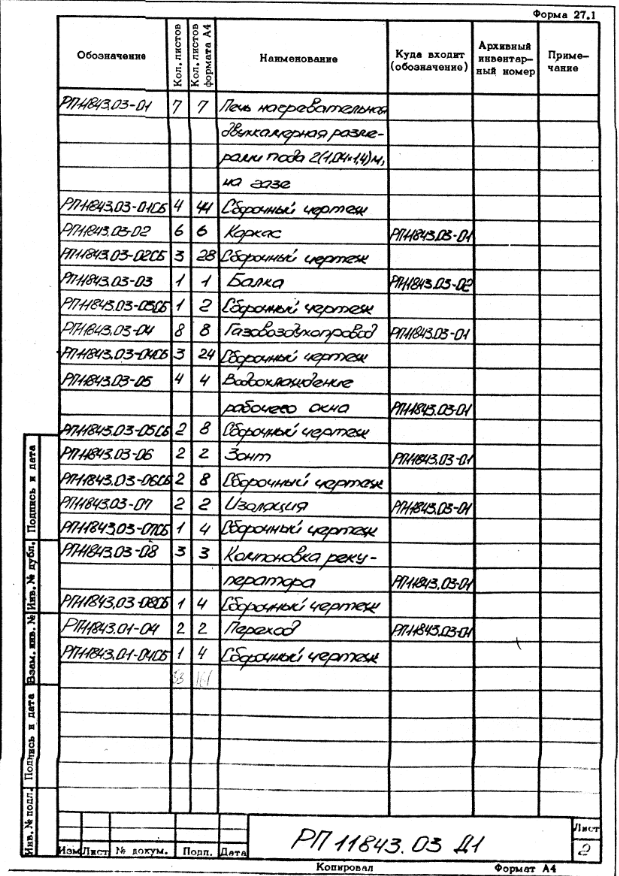 Форма 27.1
Обозначение Кол. листов Кол. листов формата А4 Наименование Куда входит (обозначение) Архивный инвентар-ный номер Приме-чание
РП11843.03-01 7 7 Печь нагревательная
двухкамерная разме-
рами пода 2(1,04×1,4)м,
на газе
РП11843.03-01СБ 4 44 Сборочный чертеж
РП11843.03-02 6 6 Каркас РП11843.03-01
РП11843.03-02СБ 3 28 Сборочный чертеж
РП11843.03-03 1 1 Балка РП11843.03-02
РП11843.03-03СБ 1 2 Сборочный чертеж
РП11843.03-04 8 8 Газовоздухопровод РП11843.03-01
РП11843.03-04СБ 3 24 Сборочный чертеж
РП11843.03-05 4 4 Водоохлаждение
рабочего окна РП11843.03-01
РП11843.03-05СБ 2 8 Сборочный чертеж
РП11843.03-06 2 2 Зонт РП11843.03-01
РП11843.03-06СБ 2 8 Сборочный чертеж
РП11843.03-07 2 2 Изоляция РП11843.03-01
РП11843.03-07СБ 1 4 Сборочный чертеж
РП11843.03-08 3 3 Компоновка реку-
ператора РП11843.03-01
РП11843.03-08СБ 1 4 Сборочный чертеж
РП11843.01-04 2 2 Переход РП11843.03-01
РП11843.01-04СБ 1 4 Сборочный чертеж
53 161
Инв. № подл. Подпись и дата Взам. инв. № Инв. № дубл. Подпись и дата
РП 11843.03 Д1
Лист
2
Изм Лист № докум. Подп. Дата
Копировал Формат А4